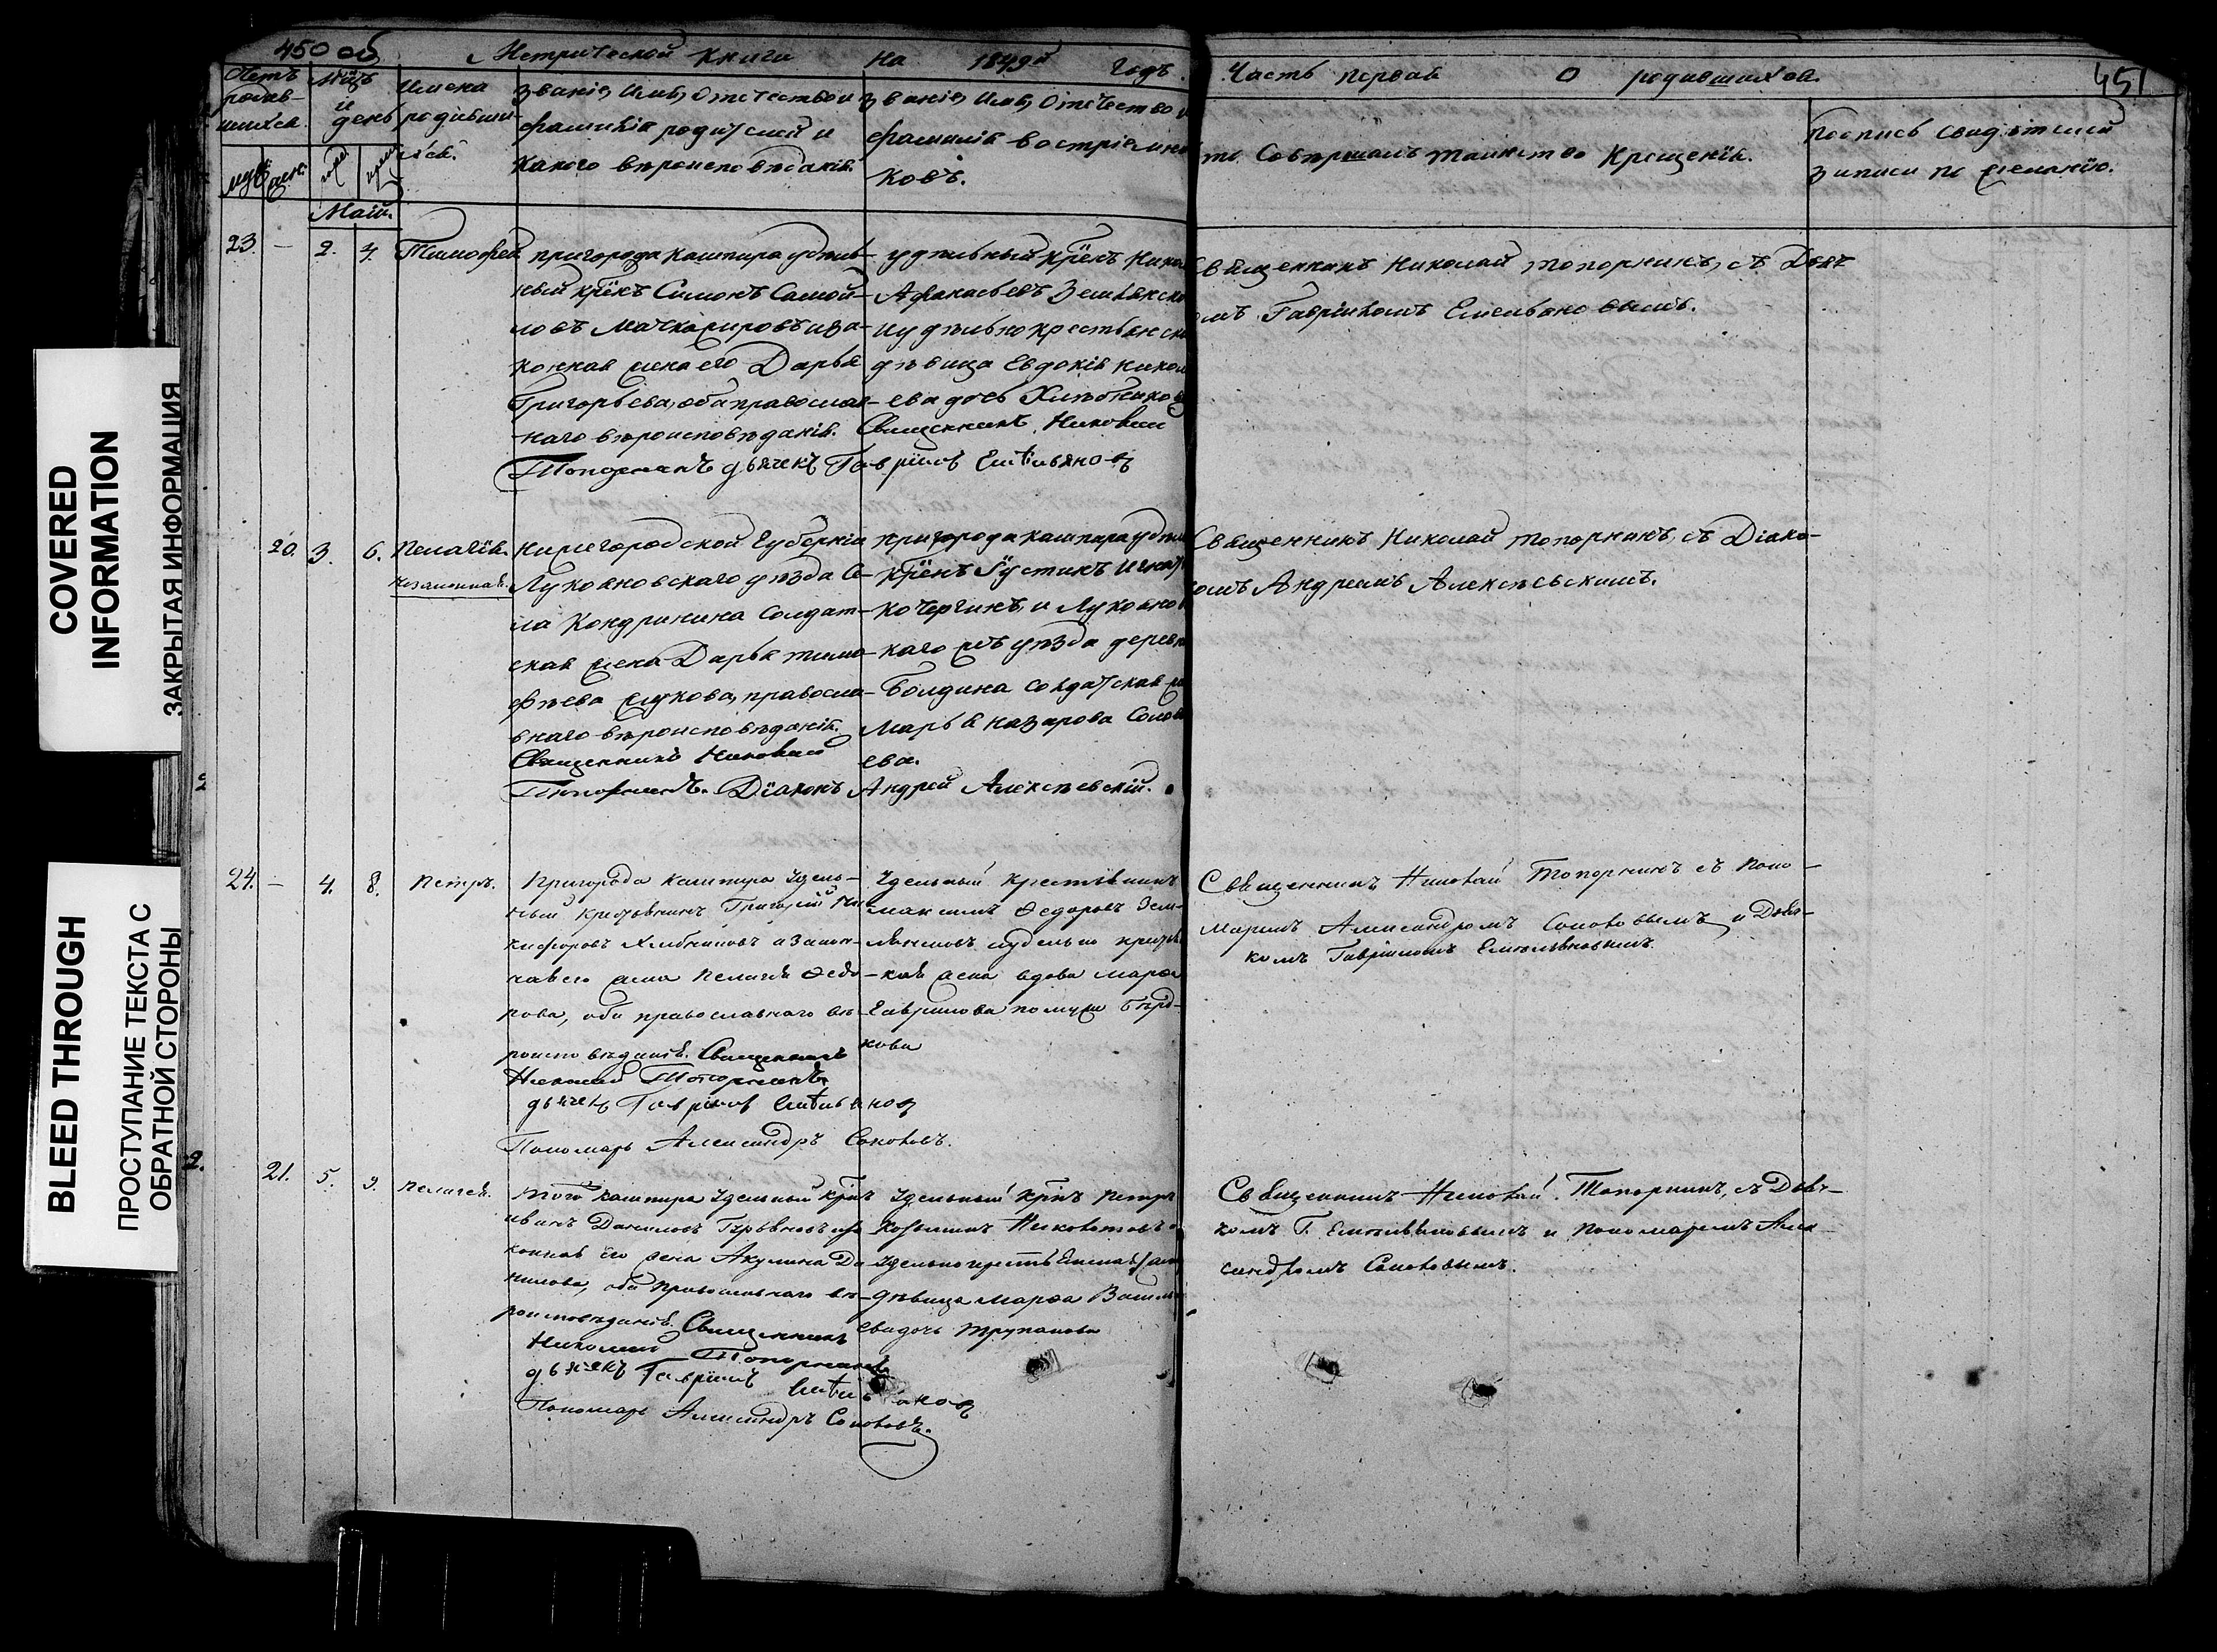 450 об
Метрической книги на 1849й годъ.
Часть первая о родившихся
451
Счетъ родившихся
муж. жен.
Мѣцъ и день
Имена родившихся.
Званіе, имя, отечество и
фамилія родителей и
какого вѣроисповѣданія.
Званіе, имя, отечество и
фамилія воспріемни
ковъ.
то совершалъ таинство крещенія.
Подпись свидѣтелей
записи по желанію.
Маій.
23. — 2. 4. Тимофей
пригорода Кашпира удѣль-
ный крнъ Симонъ Самой-
ловъ
конная жена его Дарья
Григорьева, оба православ-
наго вѣроисповѣданія.
удѣльный крнъ
Афанасьевъ
и удѣльно крестьянск
дѣвица Евдокія никол
ева дочь Хлѣбникова
Священникъ Николай
Топорнинъ дьячекъ Гаврiилъ Емельяновъ
Священникъ Николай Топорнинъ, съ Дьяч
омъ Гавріиломъ Емельяновымъ.
20. 3. 6. Пелагія.
незаконная.
Нижегородской губерніи
Лукояновскаго уѣзда се-
ла Кондрыкина солдат-
ская жена Дарья тимо-
фѣева жукова, правосла-
внаго вѣроисповѣданія.
Священникъ Николай
Топорнинъ. Діаконъ Андрей Алексѣевскій.
пригорода кашпира удѣл
крнъ Густинъ Игнат
Кочергинъ, и Лукоянов
каго жъ уѣзда деревн
Болдина солдатская ж
Марья назарова Солов
ева.
Священникъ Николай Топорнинъ, съ Діако-
омъ Андреемъ Алексѣевскимъ.
24. — 4. 8. Петръ.
Пригорода Кашпира Удель-
ный крестьянинъ Григорій Ни-
кифоровъ Хлебниковъ и закон-
ная его жена Пелагія Ѳедо-
рова, оба православнаго вѣ-
роисповѣданія. Священникъ
Николай Топорнинъ
дьячекъ Гавріилъ Емельяновъ
Пономарь Александръ Соколовъ.
Удельный крестьянинъ
максимъ Ѳедоровъ Зем-
ляковъ и удельно крестья
ская жена вдова марѳа
Гаврилова по мужу
кова
Священникъ Николай Топорнинъ съ Поно-
маремъ Александромъ Соколовымъ и Дьяч-
комъ Гавріиломъ Емельяновымъ.
21. 5. 9. Пелагея.
Того Кашпира Удельный крнъ
иванъ Даниловъ
конная его жена Акулина Да-
нилова, оба православнаго вѣ-
роисповѣданія. Священникъ
Николай Топорнинъ
дьячекъ Гавріилъ Емельяновъ
Пономарь Александръ Соколовъ.
Удельный крнъ Петръ
Козьминъ
дѣвица марѳа Василь
ева дочь Трупанова
Священникъ Николай Топорнинъ, съ Дьяч-
комъ Г. Емельяновымъ и пономаремъ Алек-
сандромъ Соколовымъ.
COVERED
INFORMATION
ЗАКРЫТАЯ ИНФОРМАЦИЯ
BLEED THROUGH
ПРОСТУПАНИЕ ТЕКСТА С
ОБРАТНОЙ СТОРОНЫ